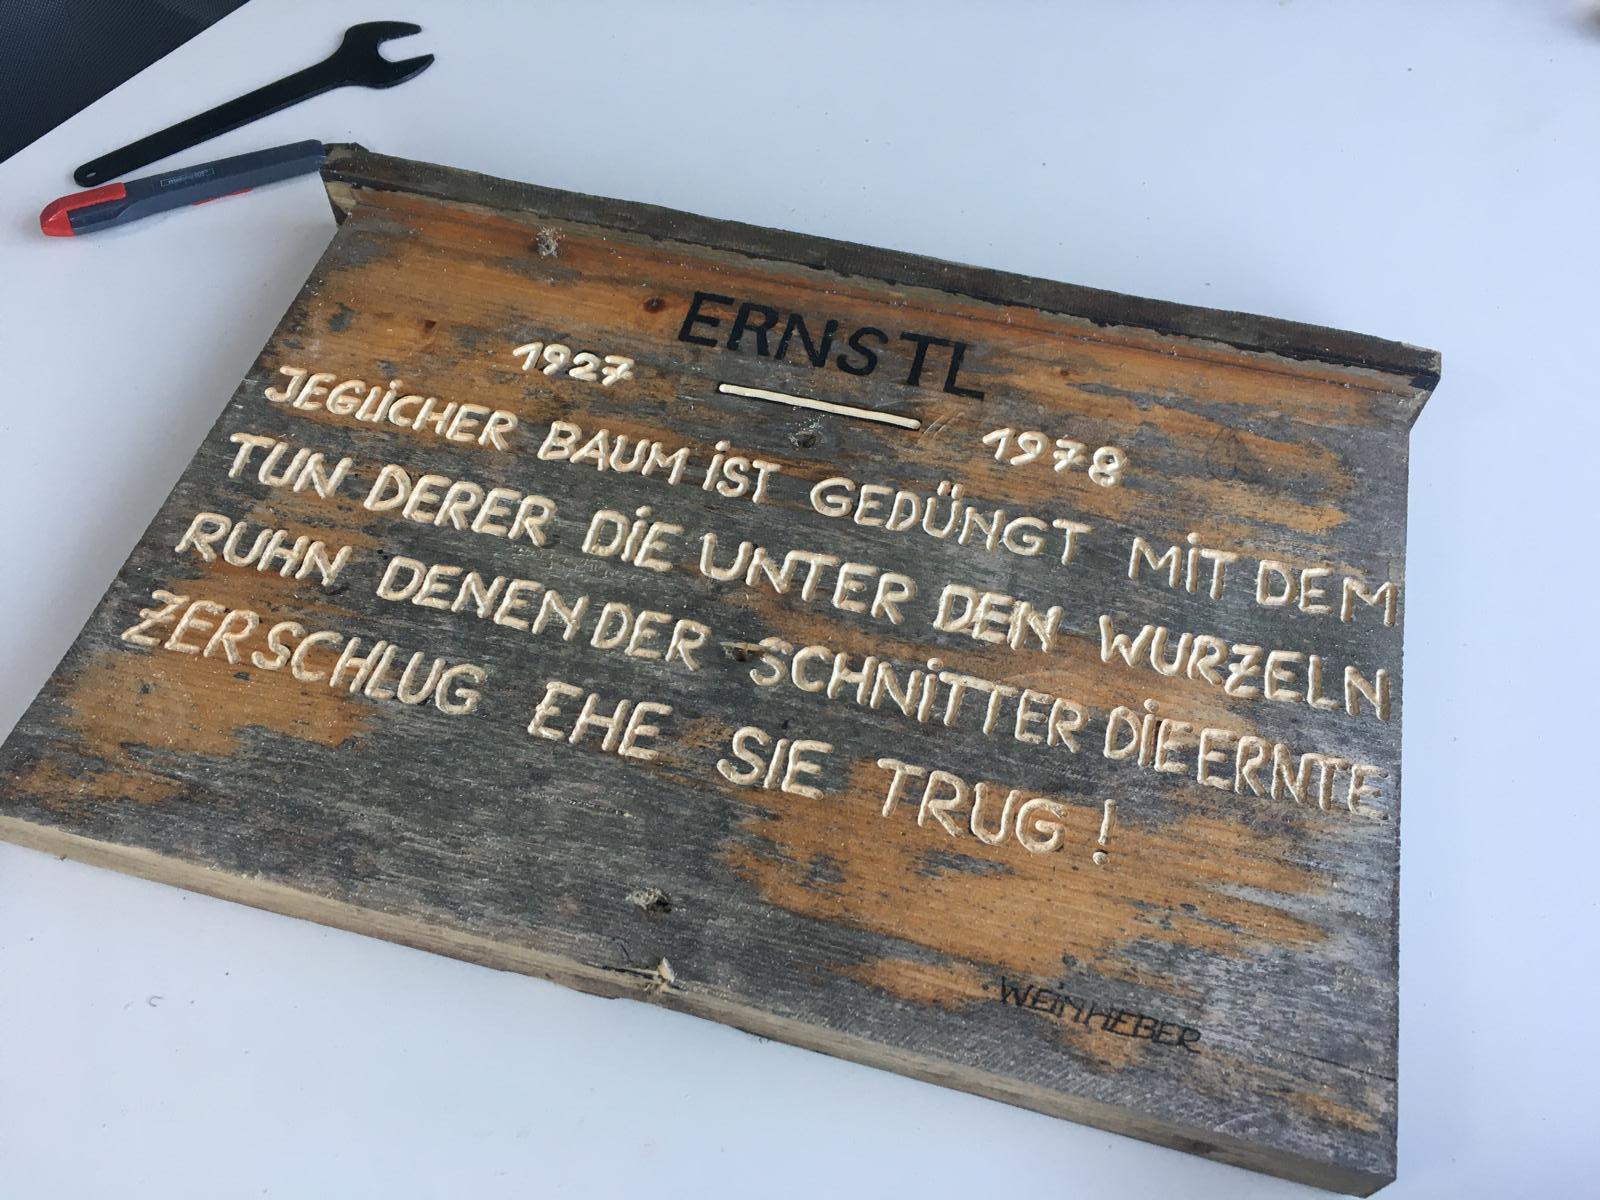 ERNSTL
1927 1978
JEGLICHER BAUM IST GEDÜNGT MIT DEM
TUN DERER DIE UNTER DEN WURZELN
RUHN DENEN DER SCHNITTER DIE ERNTE
ZERSCHLUG EHE SIE TRUG !
WEINHEBER